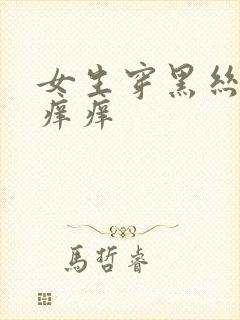 女生穿黑絲
痒痒
馬哲睿